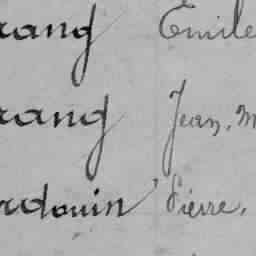 rang Emile
rang Jean, M
rdouin Pierre,